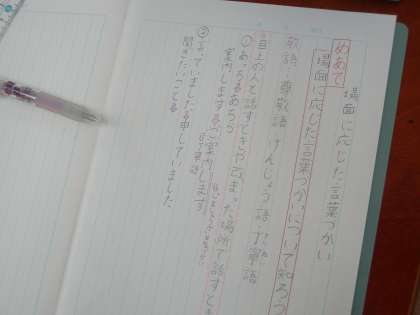 場面に応じた言葉つかい
めあて
場面に応じた言葉つかいについて知ろう
敬語 尊敬語 けんじょう語 丁寧語
目上の人と話すときや改まった場所で話すとき
①あっちるあちら
案内しますするご案内します
②言っていましたる申していました
聞きたいことる